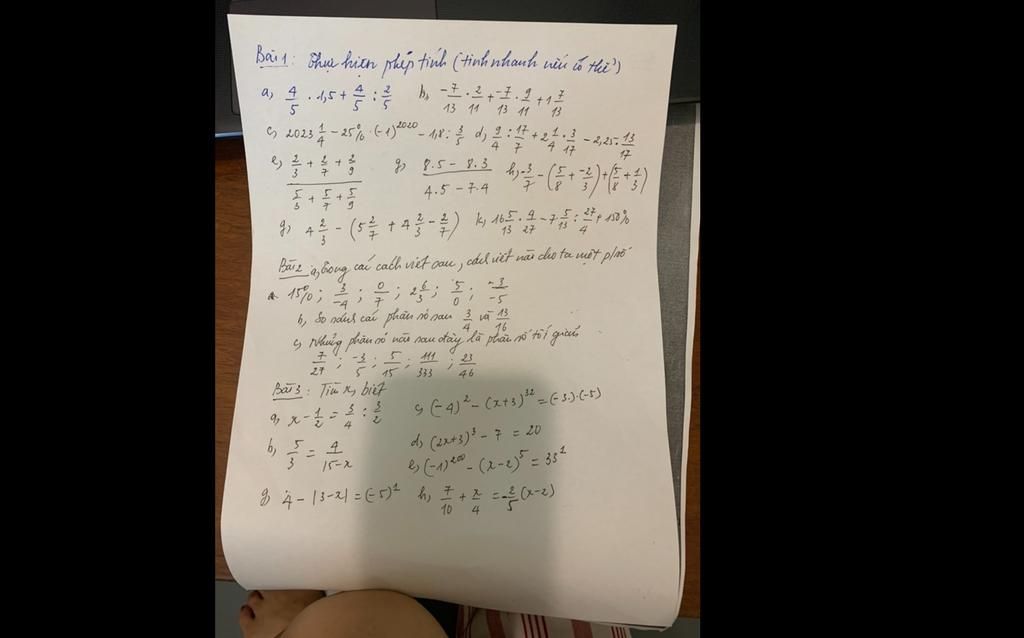 Bài 1: Thực hiện phép tính (tính nhanh nếu có thể)
a, 4/5 . 1,5 + 4/5 : 2/5 b, -7/13 . 2/11 + -7/13 . 9/11 + 1 7/13
c, 2023 1/4 - 25% . (-1)^2020 - 1,8 : 3/5 d, 9/4 : 17/7 + 2 1/4 . 3/17 - 2,25 . 13/17
e, (2/3 + 2/7 + 2/9) / (5/3 + 5/7 + 5/9) g, (8.5 - 8.3) / (4.5 - 7.4) h, -3/7 - (5/8 + -2/3) + (5/8 + 1/3)
g, 4 2/3 - (5 2/7 + 4 2/3 - 2/7) k, 16 5/13 . 4/27 - 7 5/13 : 27/4 + 150%
Bài 2 a, Trong các cách viết sau, cách viết nào cho ta một p/số
15%; 3/-4; 0/7; 2 6/3; 5/0; -3/-5
b, So sánh các phân số sau 3/4 và 13/16
c, Những phân số nào sau đây là phân số tối giản
7/27; -3/5; 5/15; 111/333; 23/46
Bài 3: Tìm x, biết
a, x - 1/2 = 3/4 : 3/2 c, (-4)^2 - (x+3)^32 = (-3).(-5)
b, 5/3 = 4/15-x d, (2x+3)^3 - 7 = 20
e, (-1)^200 - (x-2)^5 = 33^1
g, 4 - |3-x| = (-5)^1 h, 7/10 + x/4 = -2/5 (x-2)